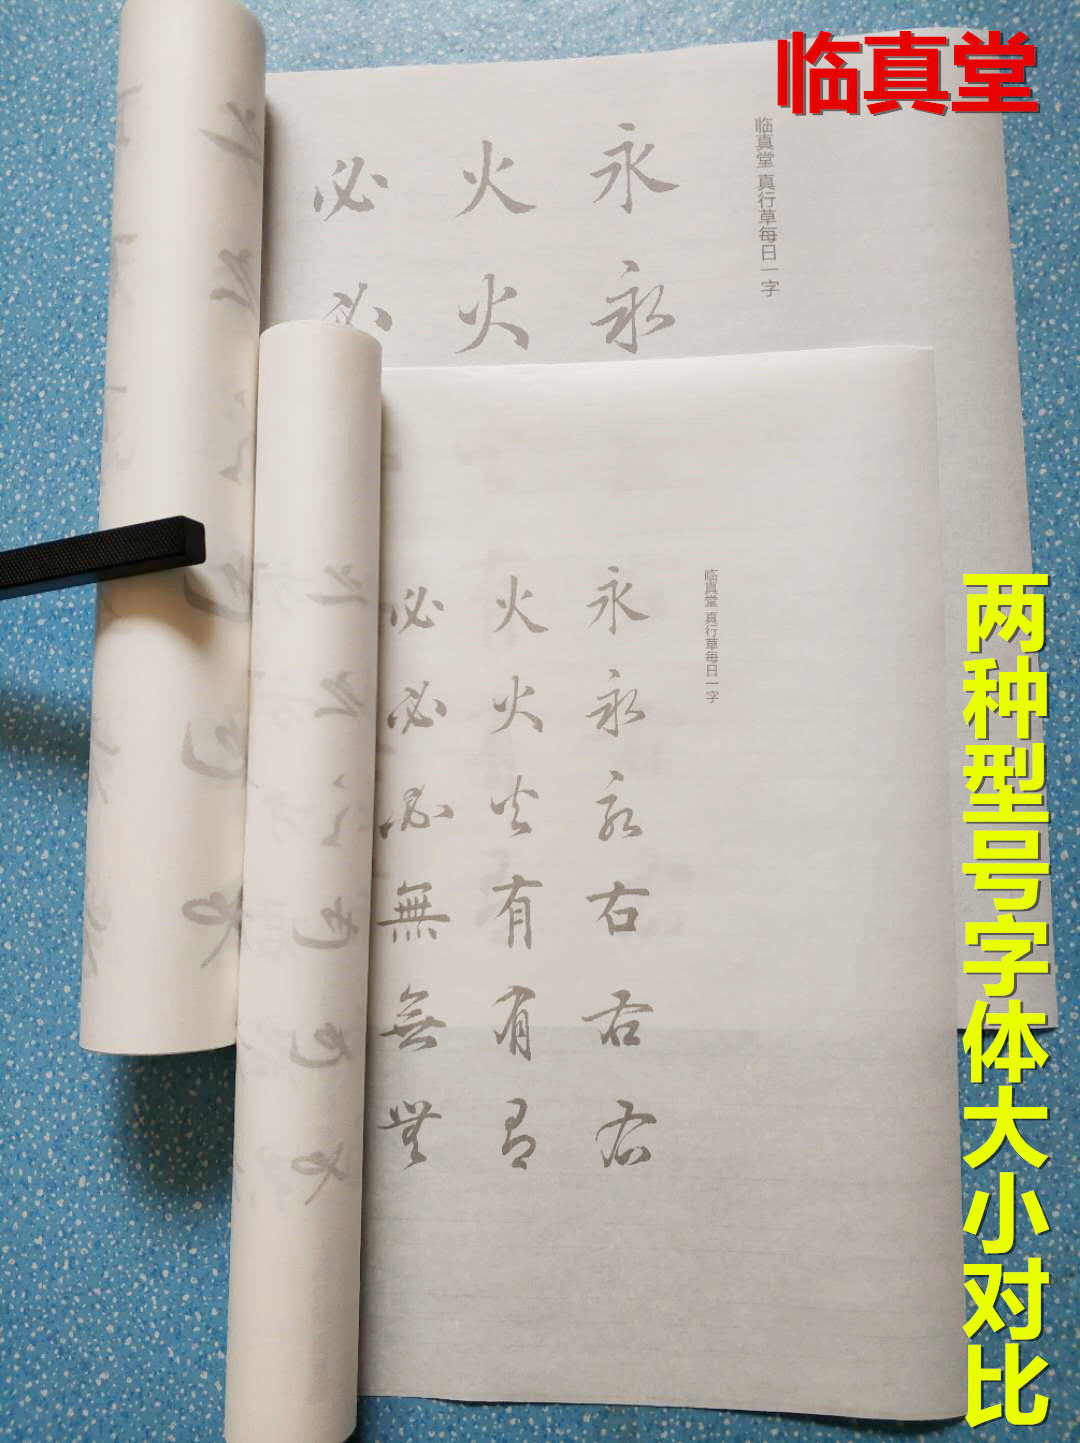 临真堂
临真堂 真行草每日一字
永永
火火
必必
临真堂 真行草每日一字
永永永右右右
火火火有有有
必必必無無無
之之之也也也
两种型号字体大小对比